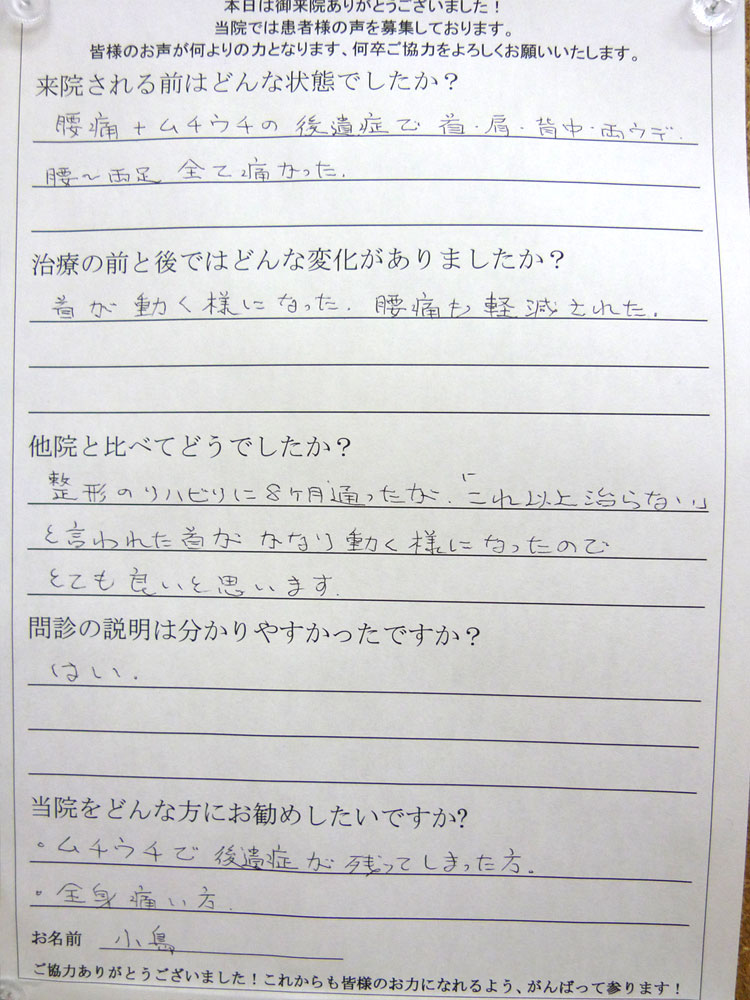 本日は御来院ありがとうございました！
当院では患者様の声を募集しております。
皆様のお声が何よりの力となります、何卒ご協力をよろしくお願いいたします。
来院される前はどんな状態でしたか？
腰痛＋ムチウチの後遺症で首・肩・背中・両ウデ.
腰〜両足 全て痛かった.
治療の前と後ではどんな変化がありましたか？
首が動く様になった. 腰痛も軽減された.
他院と比べてどうでしたか？
整形のリハビリに8ヶ月通ったが.「これ以上治らない」
と言われた首がかなり動く様になったので
とても良いと思います.
問診の説明は分かりやすかったですか？
はい.
当院をどんな方にお勧めしたいですか?
・ムチウチで後遺症が残ってしまった方。
・全身痛い方.
お名前 小鳥
ご協力ありがとうございました！これからも皆様のお力になれるよう、がんばって参ります！